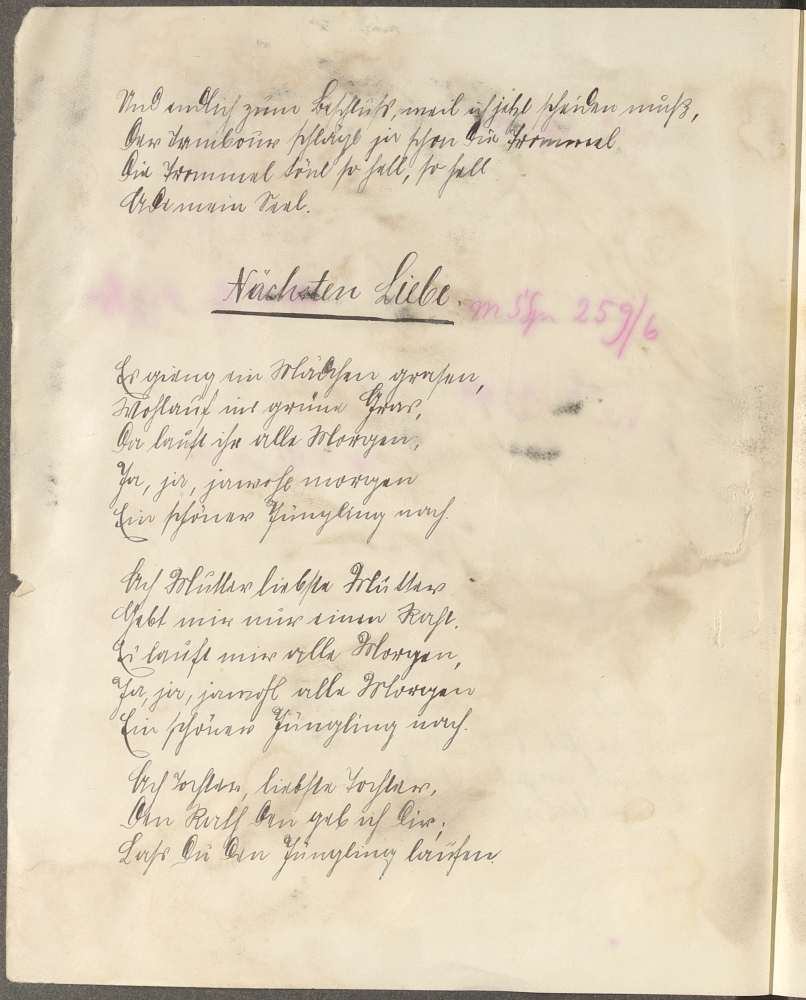 Und endlich zum Beschluß, weil ich jetzt scheiden muß,
Der Tambour schlägt ja schon die Trommel
Die Trommel tönt so hell, so hell
Ade mein Seel.
Nächsten Liebe.
259/6
Es gieng ein Mädchen grasen,
Wohlauf ins grüne Gras,
Da lauft ihr alle Morgen,
Ja, ja, jawohl morgen
Ein schöner Jüngling nach.
Ach Mutter liebste Mutter
Gebt mir nur einen Raht.
Es lauft mir alle Morgen,
Ja, ja, jawohl alle Morgen
Ein schöner Jüngling nach.
Ach Tochter, liebste Tochter,
Den Rath den geb ich Dir;
Lass Du den Jüngling laufen.